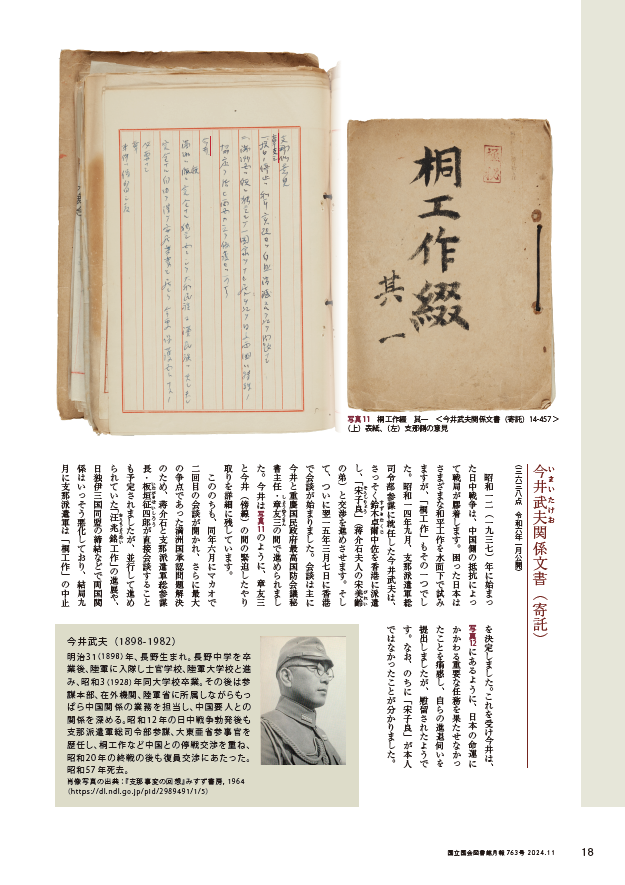 桐工作綴
其一
写真11 桐工作綴 其一 <今井武夫関係文書(寄託)14-457>
(上)表紙、(左)支那側の意見
今井武夫関係文書(寄託)
いまいたけお
(二六三八点 令和六年一月公開)
昭和一二(一九三七)年に始まっ
た日中戦争は、中国側の抵抗によっ
て戦局が膠着します。困った日本は
さまざまな和平工作を水面下で試み
ますが、「桐工作」もその一つでし
た。昭和一四年九月、支那派遣軍総
司令部参謀に就任した今井武夫は、
さっそく鈴木卓爾中佐を香港に派遣
し、「宋子良」(蔣介石夫人の宋美齢
の弟)と交渉を進めさせます。そし
て、ついに翌一五年三月七日に香港
で会談が始まりました。会談は主に
今井と重慶国民政府最高国防会議秘
書主任・章友三の間で進められまし
た。今井は写真11のように、章友三
と今井(傍線)の間の緊迫したやり
取りを詳細に残しています。
このののち、同年六月にマカオで
二回目の会談が開かれ、さらに最大
の争点であった満洲国承認問題解決
のため、蔣介石と支那派遣軍総参謀
長・板垣征四郎が直接会談すること
も予定されましたが、並行して進め
られていた「汪兆銘工作」の進展や、
日独伊三国同盟の締結などで両国関
係はいっそう悪化しており、結局九
月に支那派遣軍は「桐工作」の中止
を決定しました。これを受け今井は、
写真12にあるように、日本の命運に
かかわる重要な任務を果たせなかっ
たことを痛感し、自らの進退伺いを
提出しましたが、慰留されたようで
す。なお、のちに「宋子良」が本人
ではなかったことが分かりました。
今井武夫(1898-1982)
明治31(1898)年、長野生まれ。長野中学を卒
業後、陸軍に入隊し士官学校、陸軍大学校と進
み、昭和3(1928)年同大学校卒業。その後は参
謀本部、在外機関、陸軍省に所属しながらもっ
ぱら中国関係の業務を担当し、中国要人との
関係を深める。昭和12年の日中戦争勃発後も
支那派遣軍総司令部参謀、大東亜省参事官を
歴任し、桐工作など中国との停戦交渉を重ね、
昭和20年の終戦の後も復員交渉にあたった。
昭和57年死去。
肖像写真の出典:『支那事変の回想』みすず書房, 1964
(https://dl.ndl.go.jp/pid/2989491/1/5)
国立国会図書館月報 763号 2024.11
18